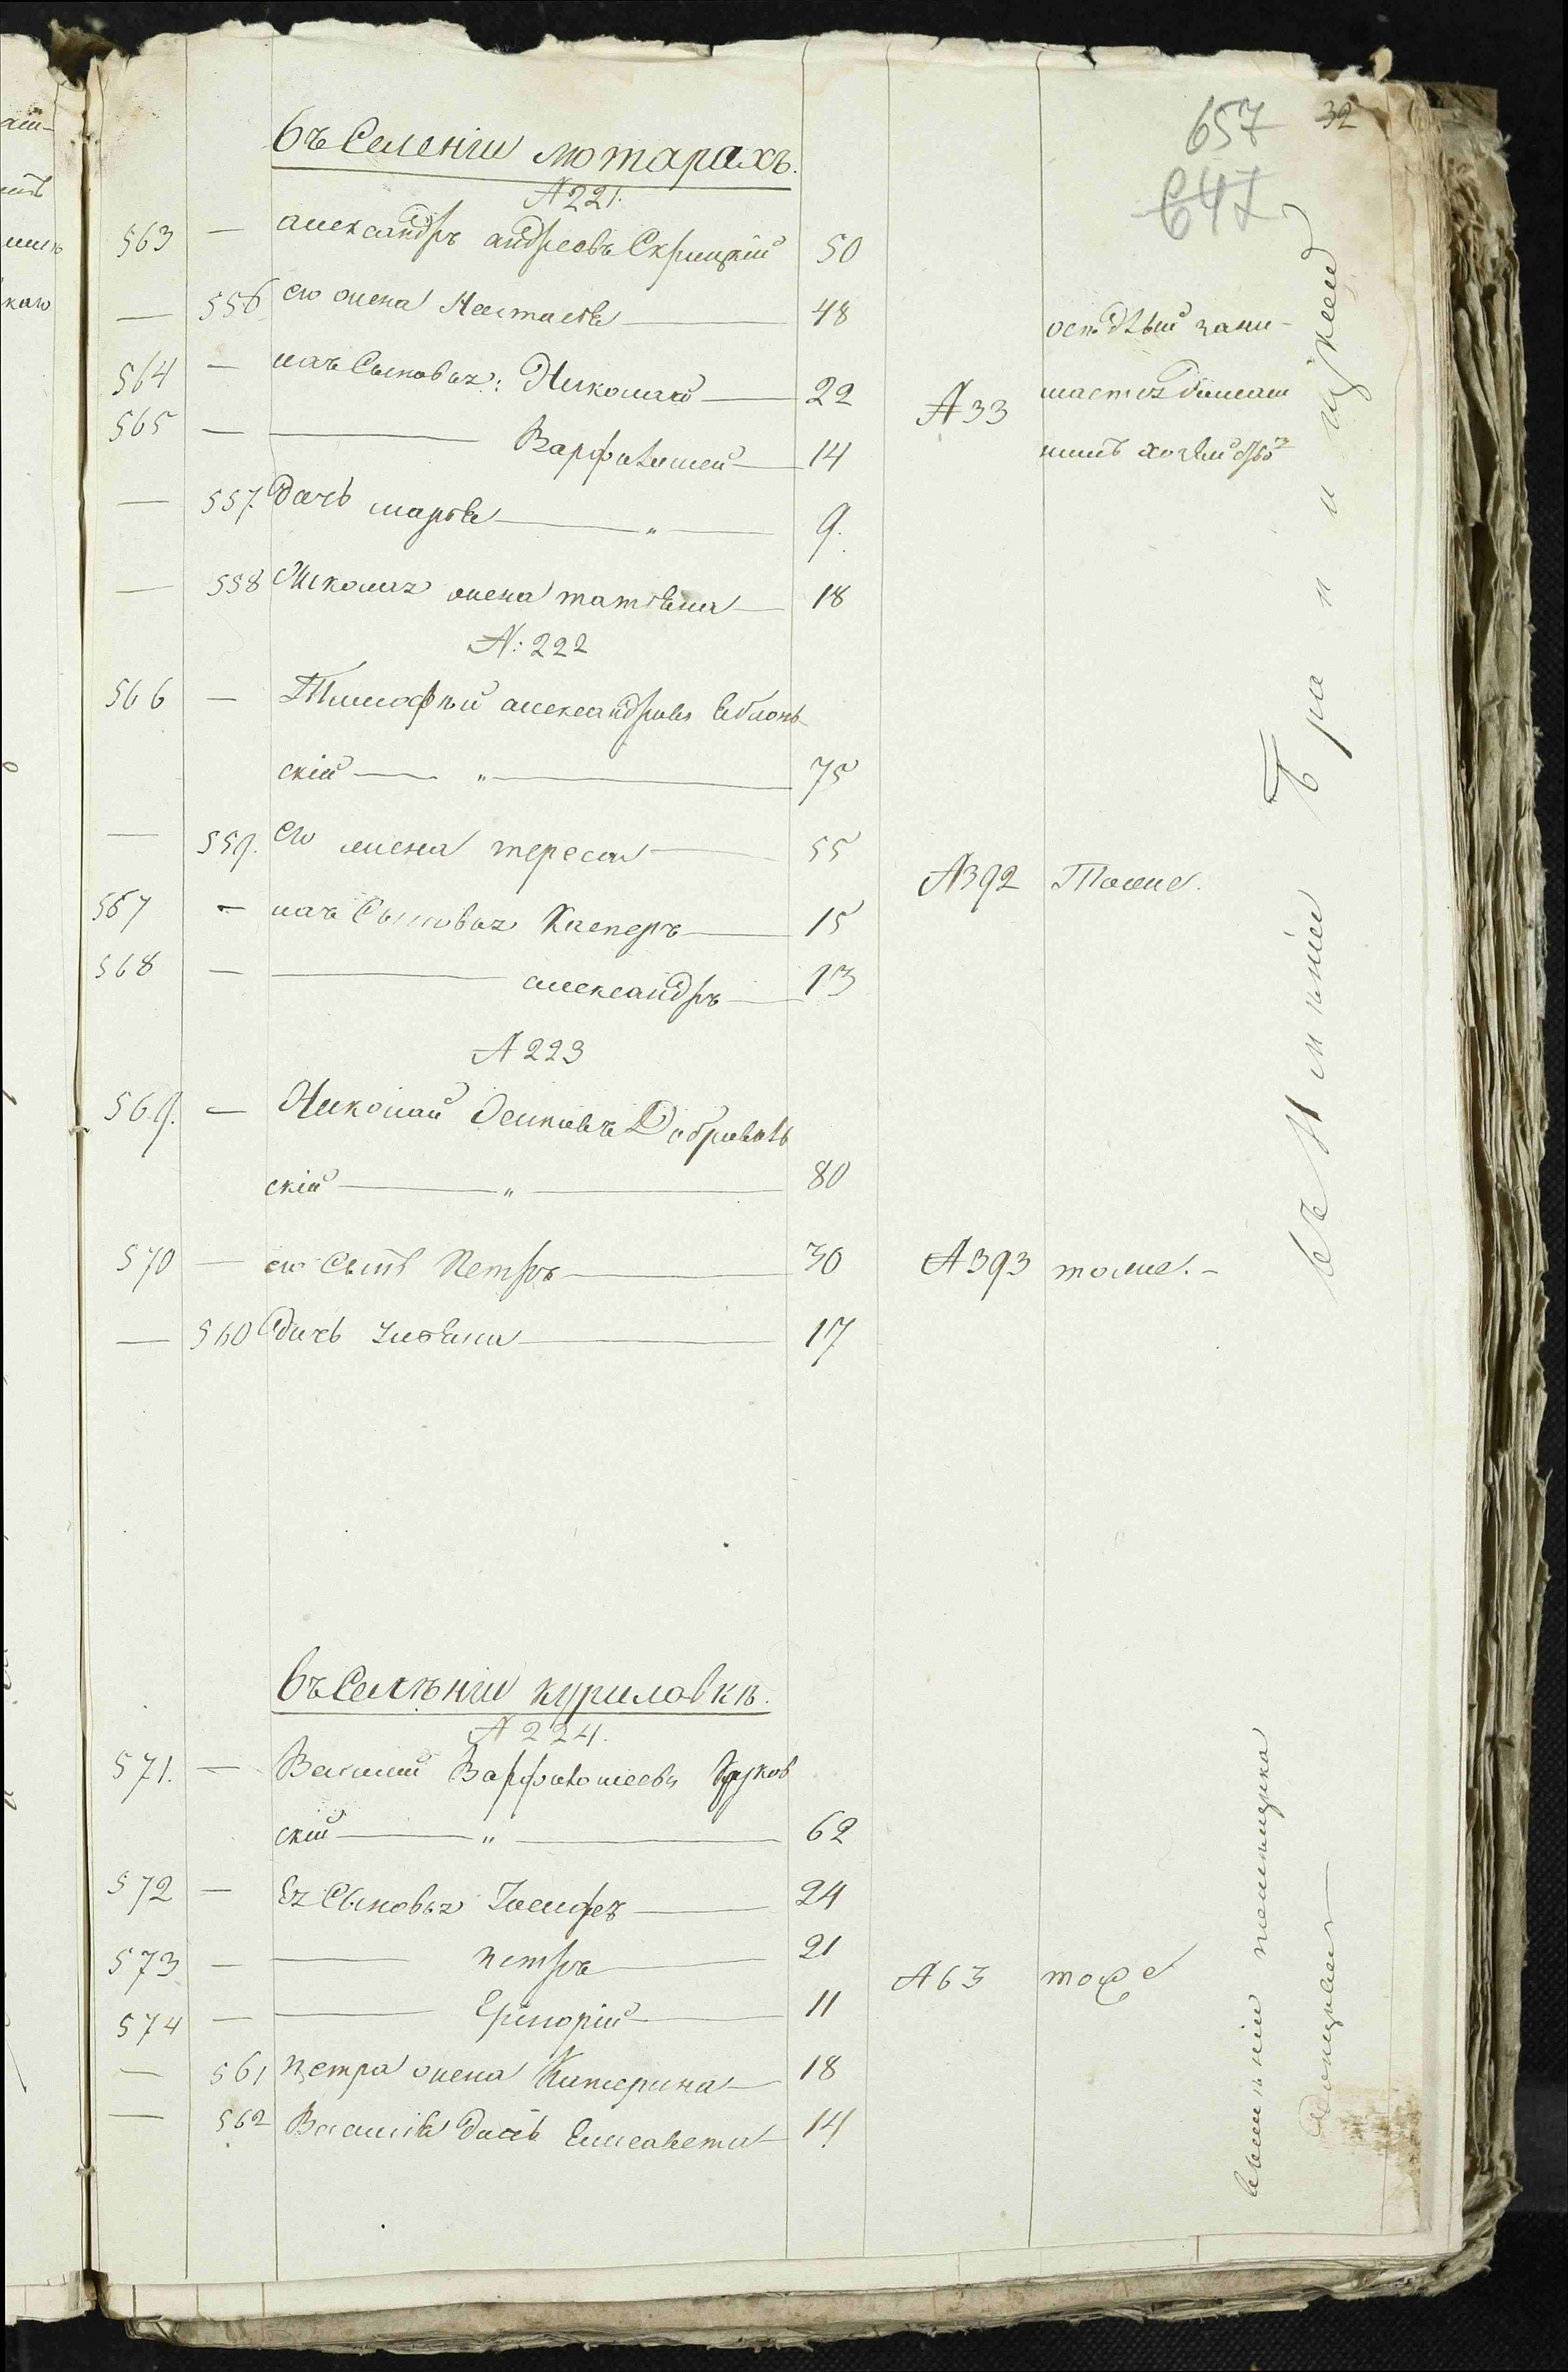 657 32
647
въ Селеніи мотарахъ.
№ 221.
563 — александръ андреевъ Скрицкій 50
— 556 его жена Настасія — 48
564 — ихъ Сыновья: Николай — 22
565 — — Варфоломей — 14
— 557. дочь марія — " — 9.
— 558 Николая жена татіяна — 18
№ 33
осѣдлый зани-
мается домаш
нимъ хозяйствомъ
№: 222
566 — Тимофѣй александровъ Яблонь
скій — " — 75
— 559. его жена тереса — 55
567 — ихъ Сыновья Касперъ — 15
568 — — александръ — 13
№ 392 Тоже.
№ 223
569. — Николай Осиповъ Доброволь
скій — " — 80
570 — его Сынъ Петръ — 30
— 560 дочь Уліяна — 17
№ 393 тоже. -
въ Имѣніи Браницкой
въ Селѣніи куриловкѣ.
№ 224.
571. — Василій Варфоломеевъ
скій — " — 62
572 — Ея Сыновья Іосифъ — 24
573 — — петръ — 21
574 — — Григорій — 11
— 561 петра жена Катерина — 18
— 562 Василія дочь Елисавета — 14
№ 63 тоже
въ имѣніи помещика